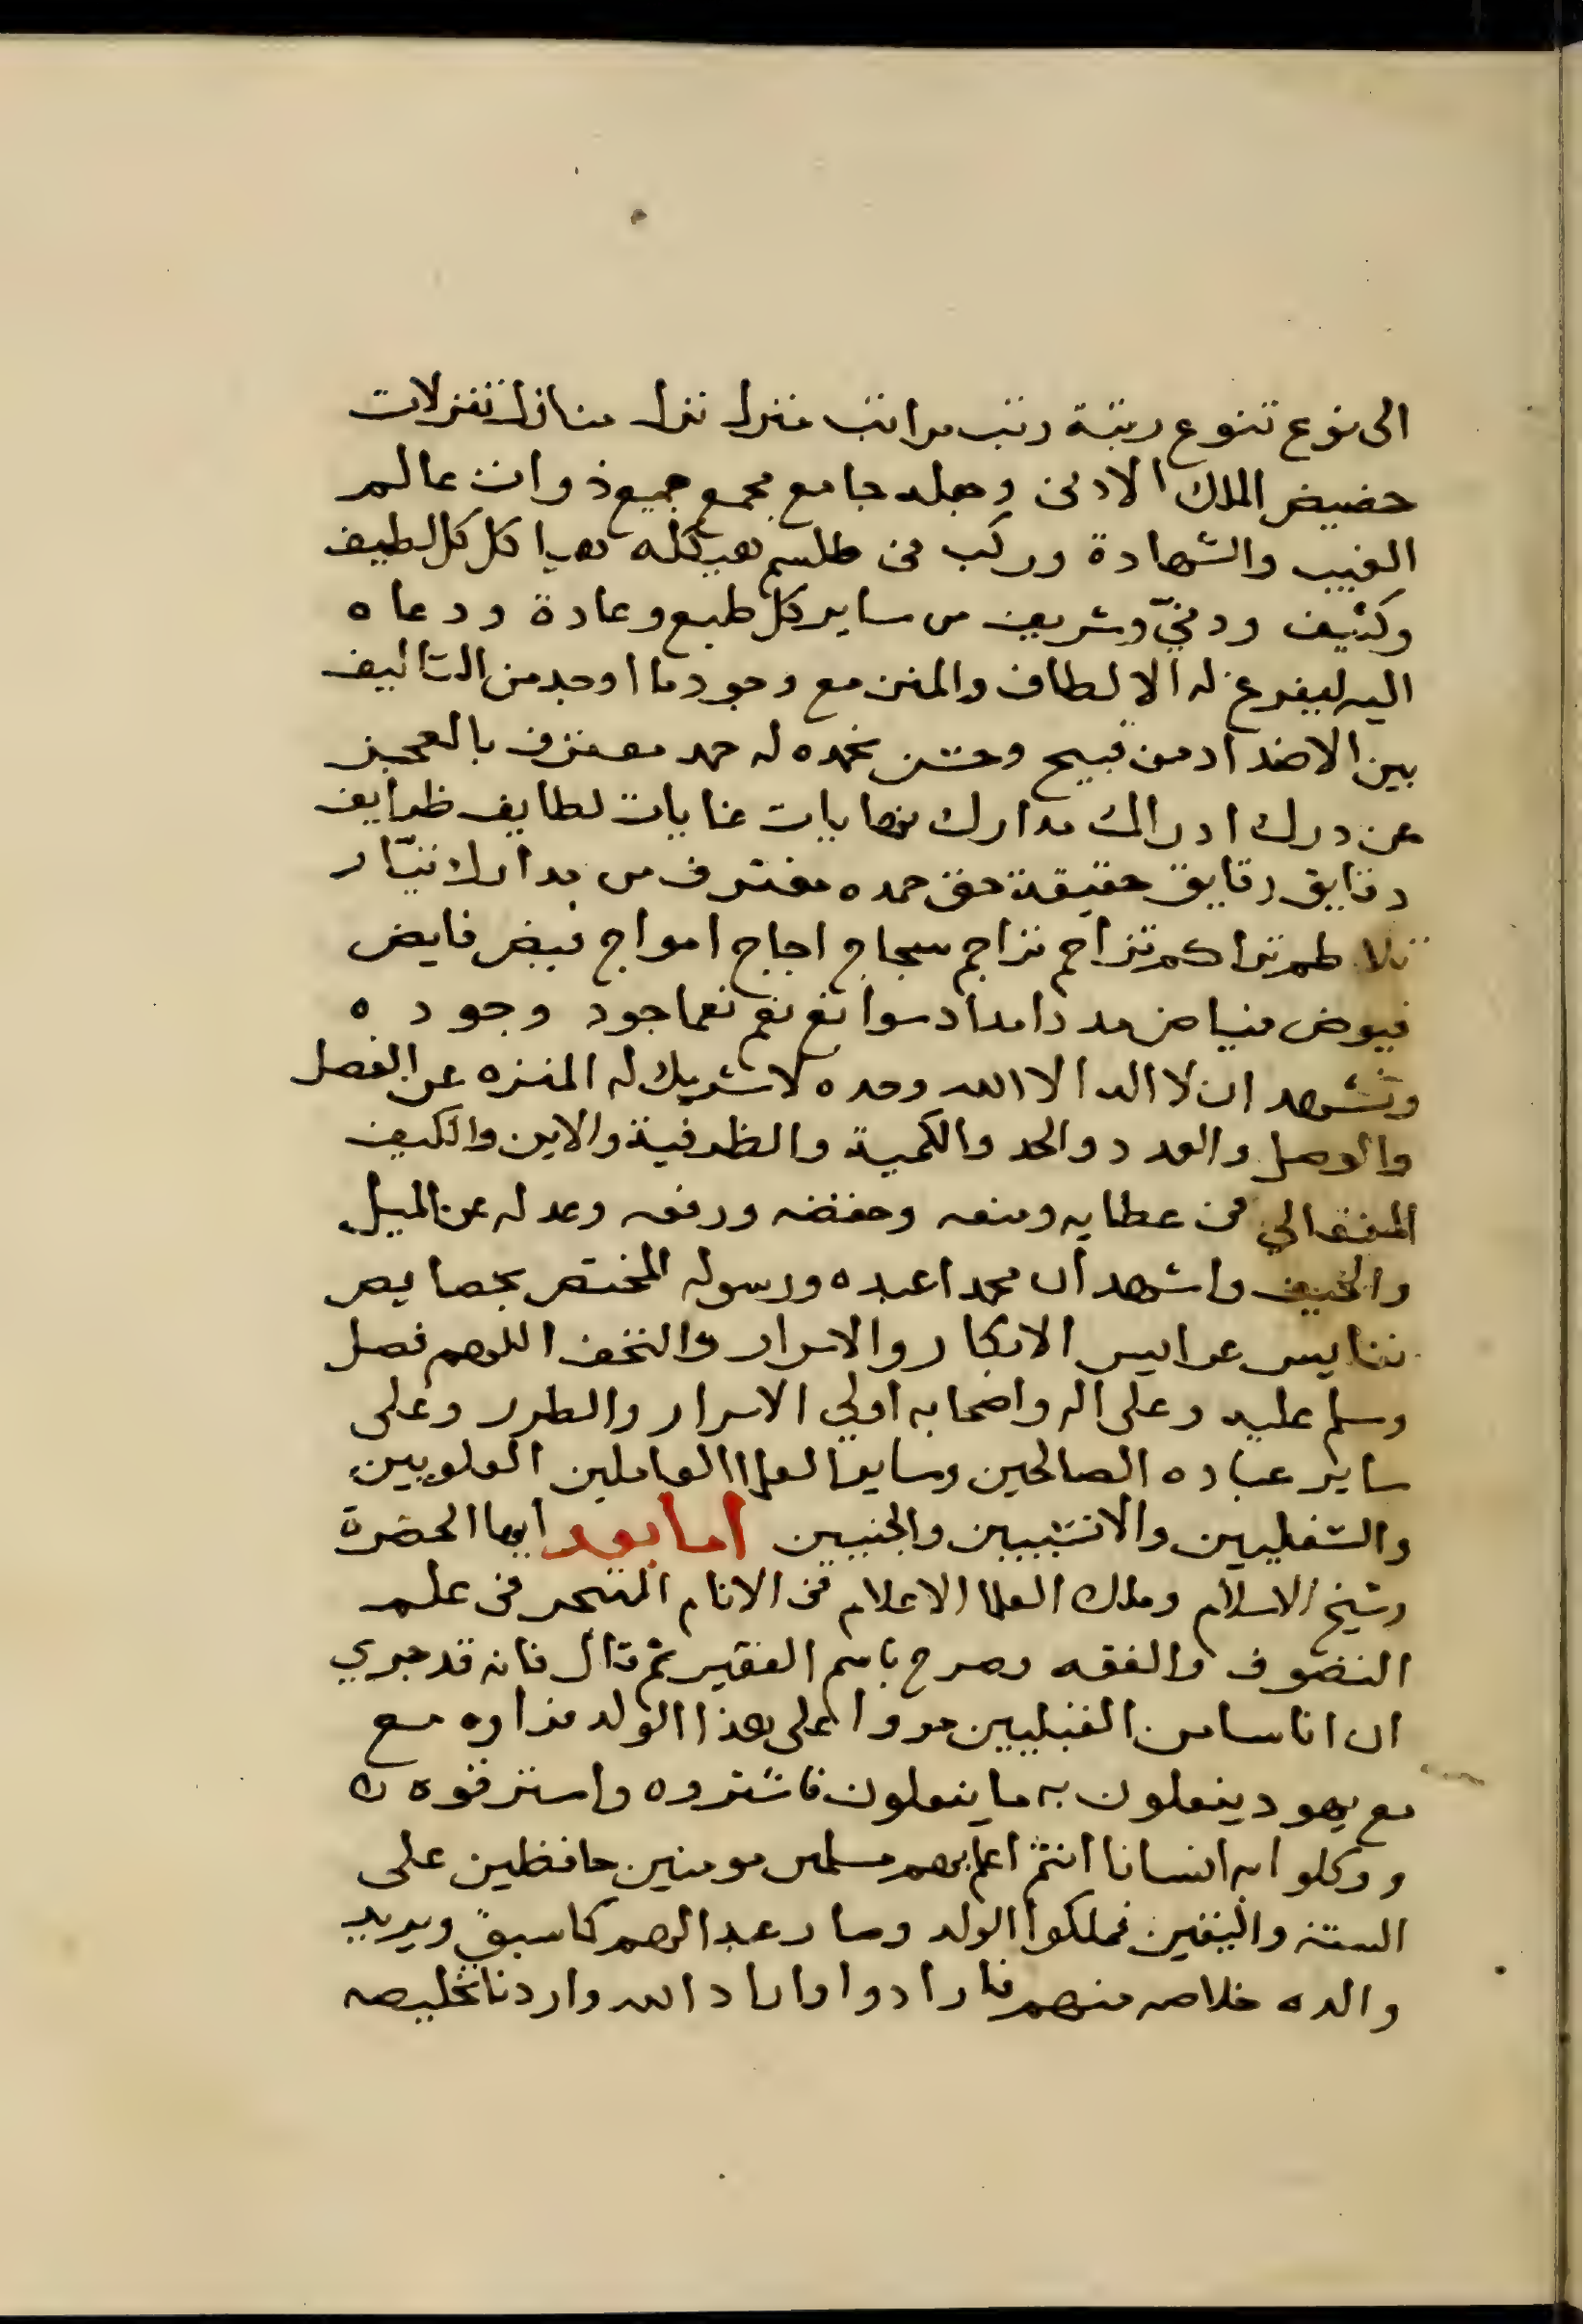 الى نوع تنوع رتبة رتب مراتب منزل نزل منازل تنزلات
حضيض الملك الادنى وجعله جامع مجمع جميع ذوات عالم
الغيب والشهادة وركب فى طلسم هيكله هيا كل كل لطيف
وكثيف ودنيّ وشريف من ساير كل طبع وعادة ودعاه
اليه ليفرغ له الالطاف والمنن مع وجود ما اوجد من التاليف
بين الاضداد من قبيح وحسن نحمده له حمد معترف بالعجز
عن درك ادراك مدارك نهايات غايات لطايف ظرايف
دقايق رقايق حقيقة حق حمده مغترف من مدارك تيّار
تلاطم تراكم تزاحم اجاج امواج فيض فايض
فيوض فياض مدد امداد سوابغ نعم نعما جود وجوده
ونشهد ان لا اله الا الله وحده لا شريك له المنزه عن الفصل
والوصل والعدد والحد والكمية والظرفية والاين والكيف
المتعالي فى عطايه ومنعه وخفضه ورفعه وعدله عن الميل
والحيف واشهد ان محمدا عبده ورسوله المختص بخصايص
نفايس عرايس الابكار والاسرار والتحف اللهم فصل
وسلم عليه وعلى اله واصحابه اولي الاسرار والطرر وعلى
ساير عباده الصالحين وساير العلما العاملين العلويين
والسفليين والانسيين والجنيين اما بعد ايها الحضرة
وشيخ الاسلام وملك العلما الاعلام فى الانام المتبحر فى علم
التصوف والفقه وصرح باسم الفقير ثم قال فانه قد جري
ان اناسا من مروا على هذا الولد فراوه مع
مع يهود يفعلون به ما يفعلون فاشتروه واسترقوه
ووكلوا به انسانا انتم اعلم بهم مسلمين مومنين حافظين على
السنة فملكوا الولد وسار عبدا لهم كما سبق ويريد
والده خلاصه منهم فارادوا واراد الله واردنا تخليصه